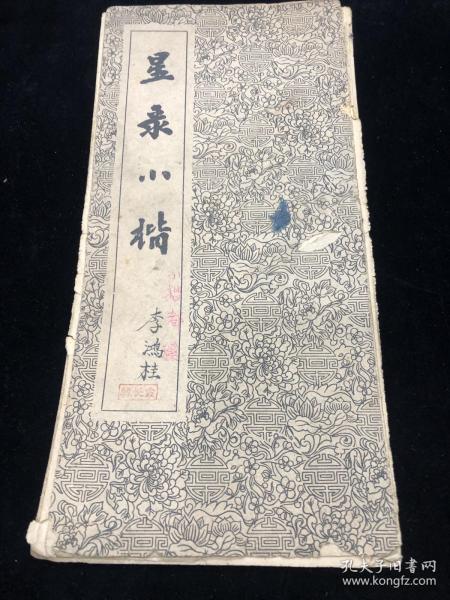 星录小楷
李鸿桂
孔夫子旧书网
www.kongfz.com